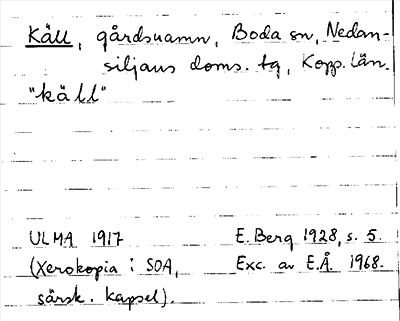 Käll, gårdsnamn, Boda sn, Nedan-
siljans doms. tg, Kopp. län.
"käll"
ULMA 1917 E. Berg 1928, s. 5.
(Xerokopia i SOA, Exc. av E.Å. 1968.
särsk. kapsel).